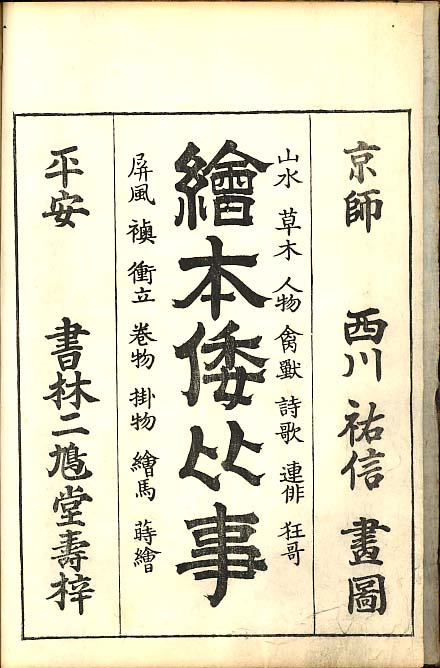 京師 西川祐信畫圖
山水 草木 人物 禽獸 詩歌 連俳 狂哥
繪本倭比事
屏風 襖 衝立 巻物 掛物 繪馬 蒔繪
平安 書林二鳩堂壽梓